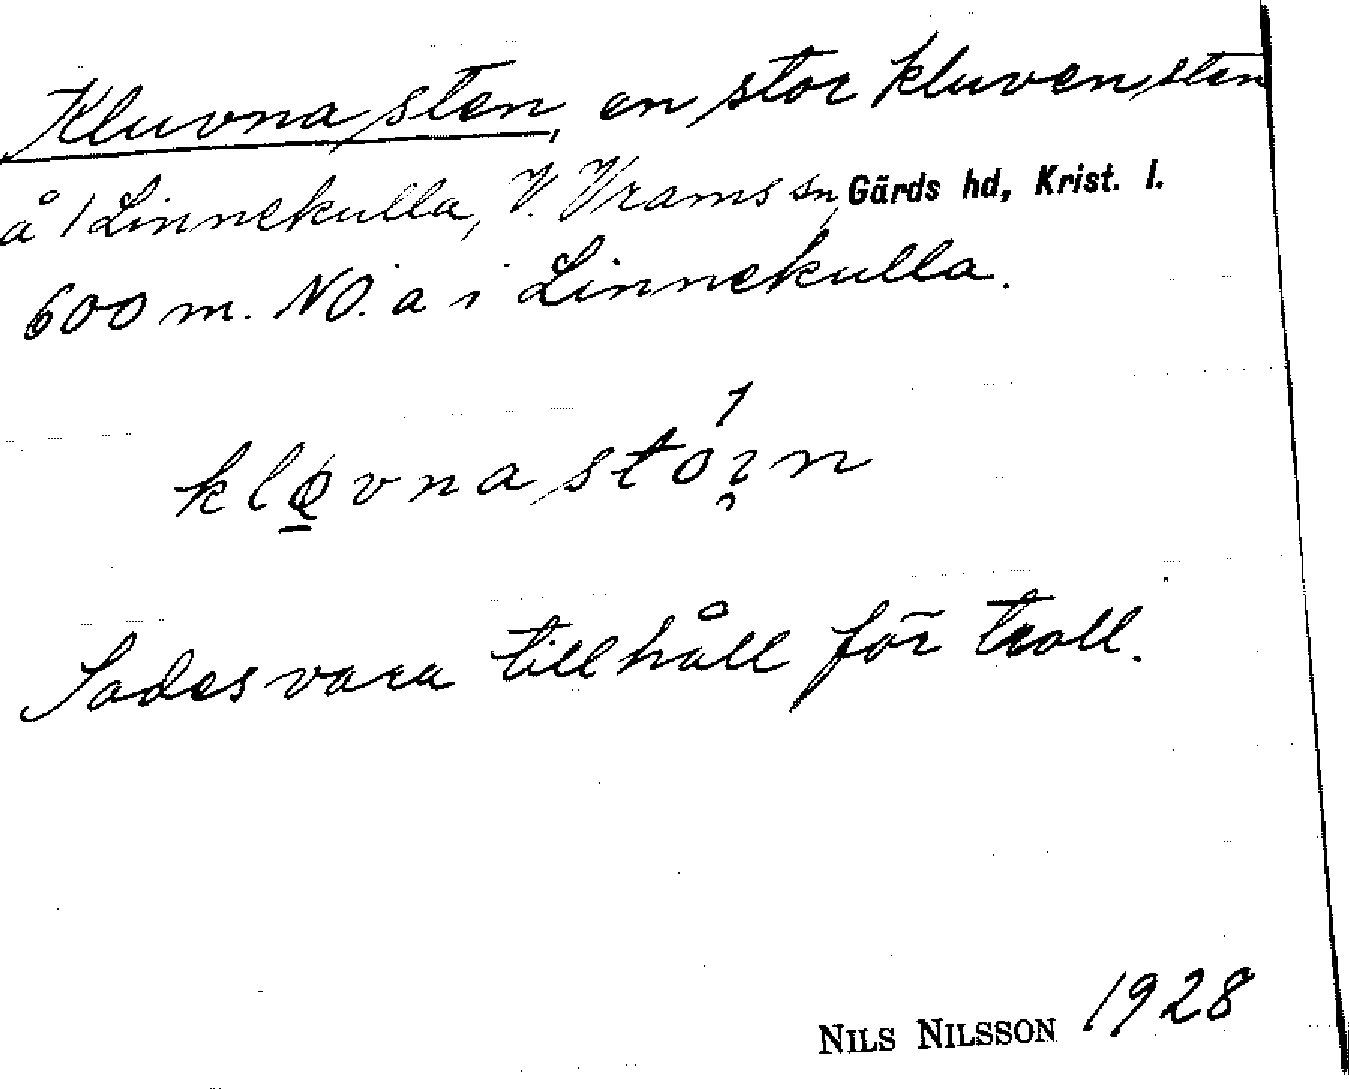 Kluvna sten, en stor kluven sten
å 1 Linnekulla, V. Vrams sn, Gärds hd, Krist. l.
600 m. NO. a 1 Linnekulla.
Sades vara tillhåll för troll.
NILS NILSSON 1928